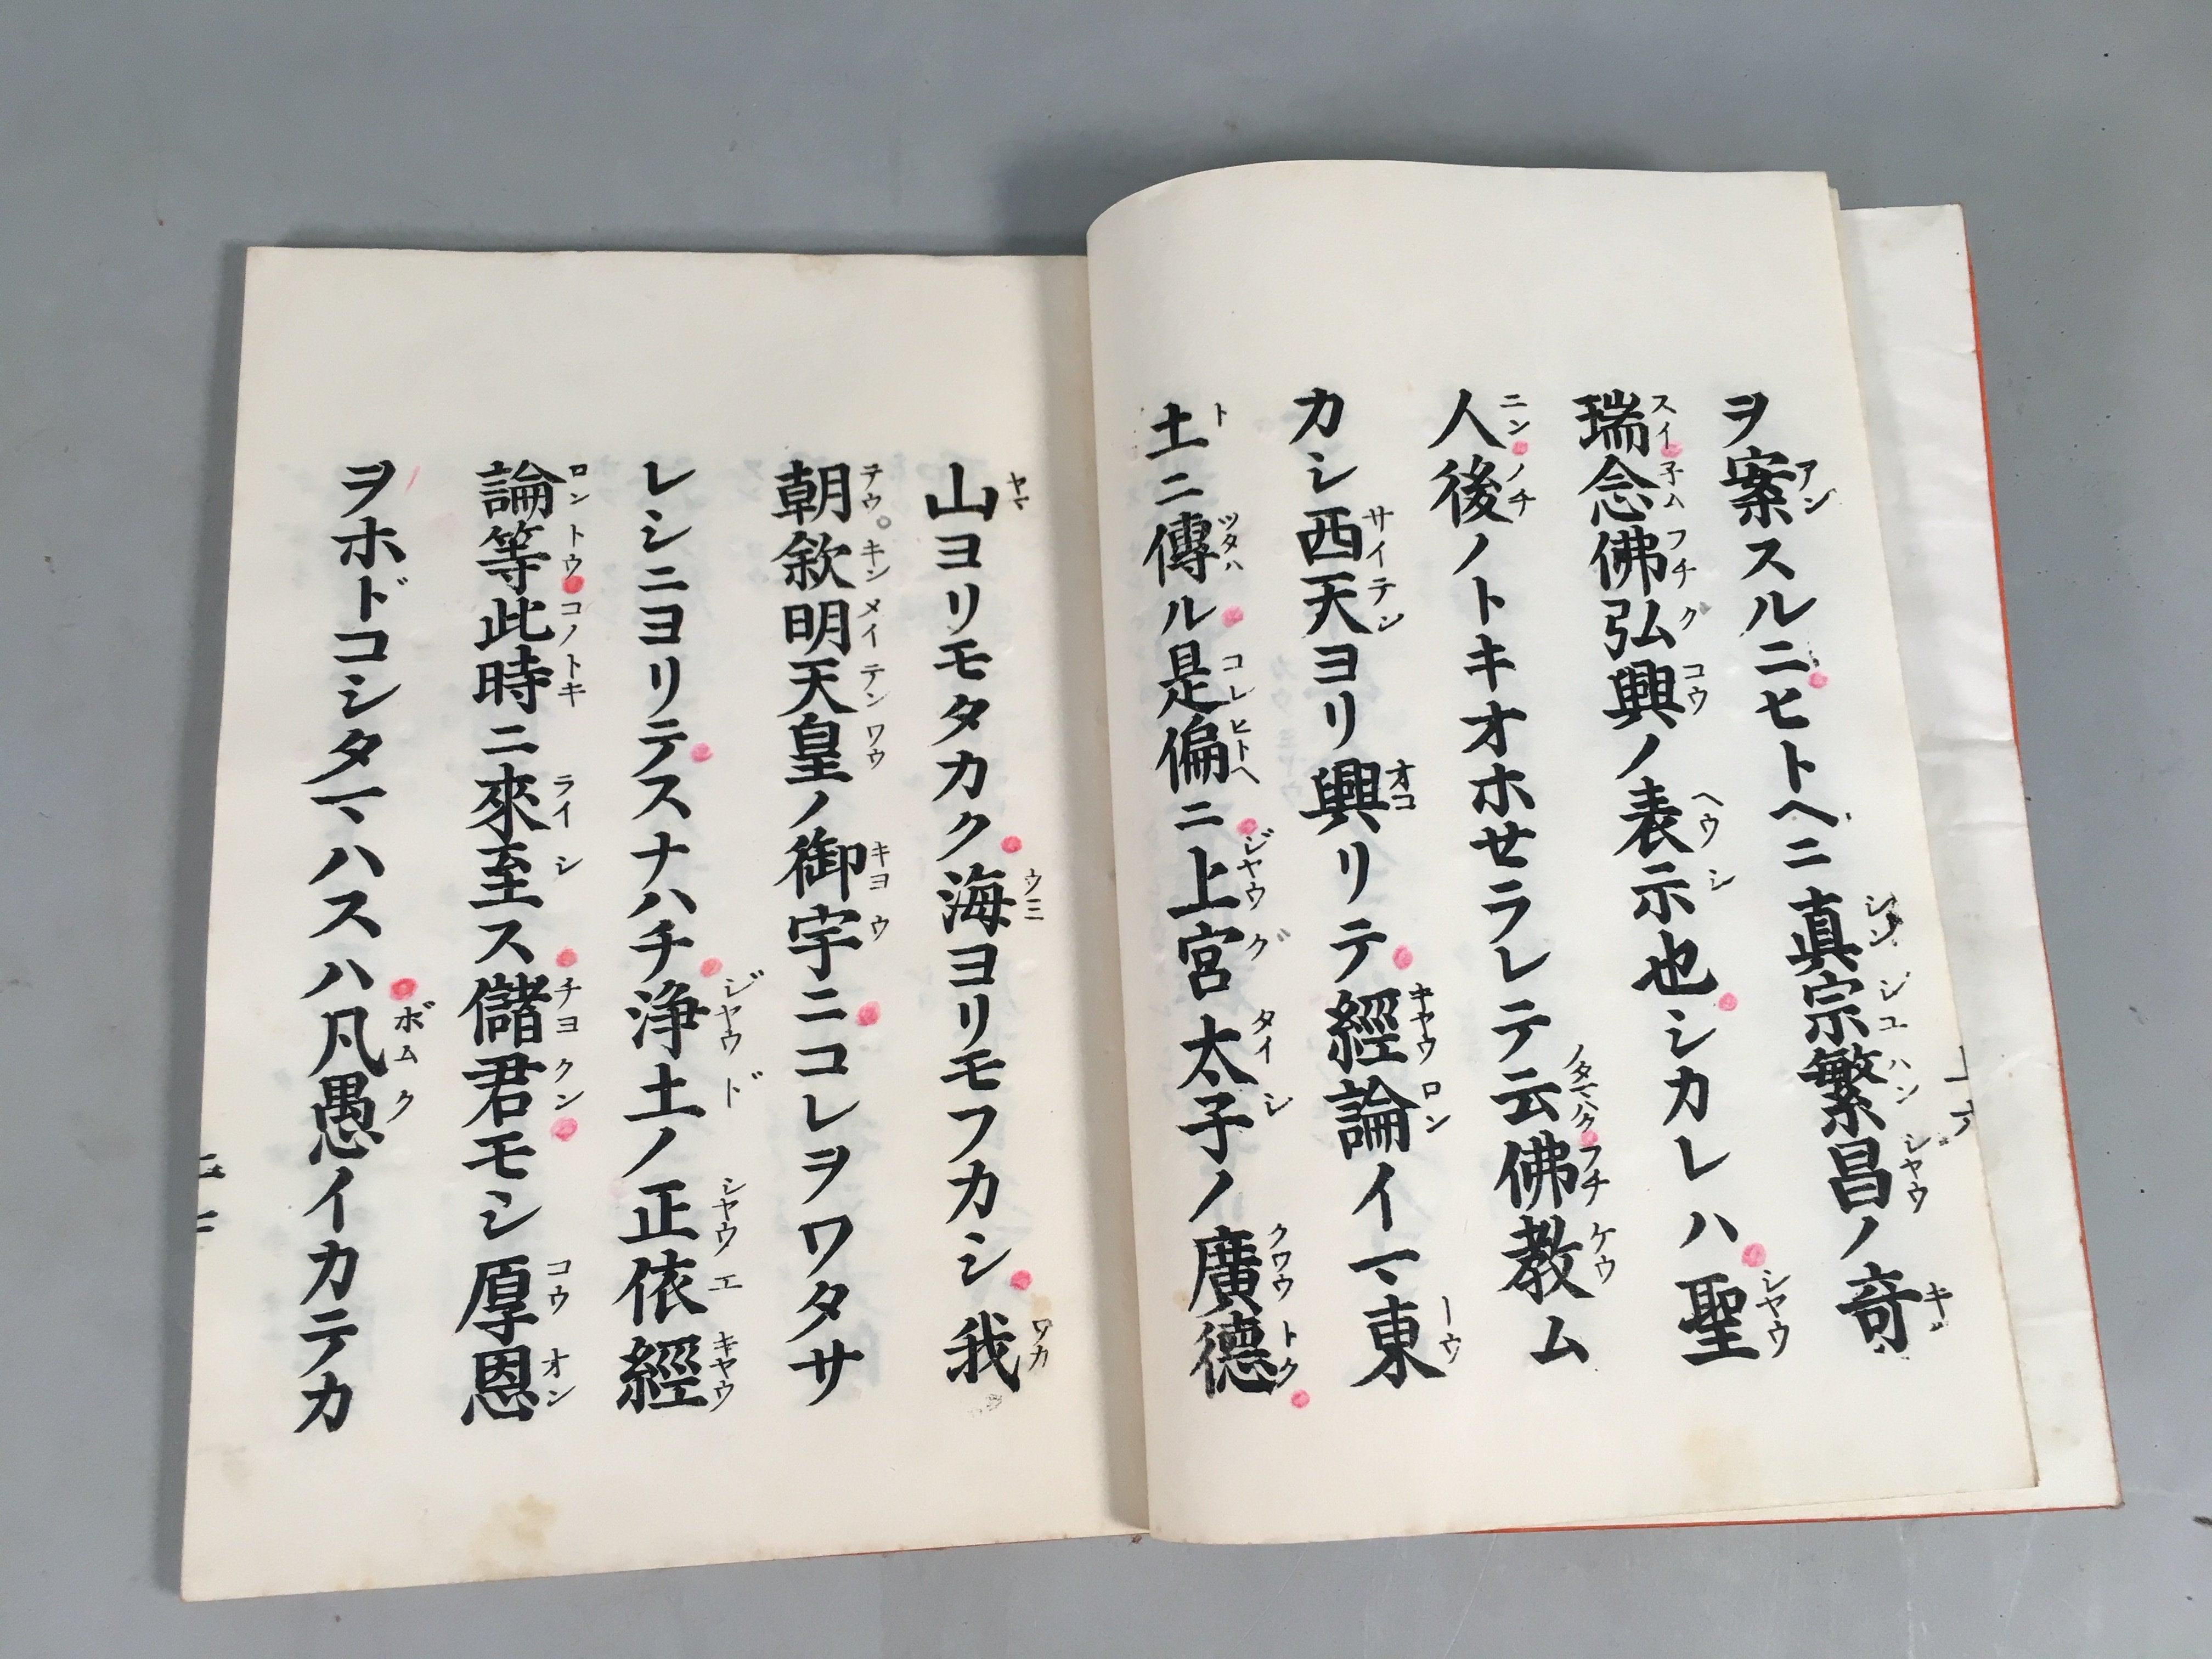 ヲ案スルニヒトヘニ真宗繁昌ノ奇
瑞念佛弘興ノ表示也シカレハ聖
人後ノトキオホせラレテ云佛教ム
カシ西天ヨリ興リテ經論イマ東
土ニ傳ル是偏ニ上宮太子ノ廣德
山ヨリモタカク海ヨリモフカシ我
朝欽明天皇ノ御宇ニコレヲワタサ
レシニヨリテスナハチ浄土ノ正依經
論等此時ニ來至ス儲君モシ厚恩
ヲホドコシタマハスハ凡愚イカテカ